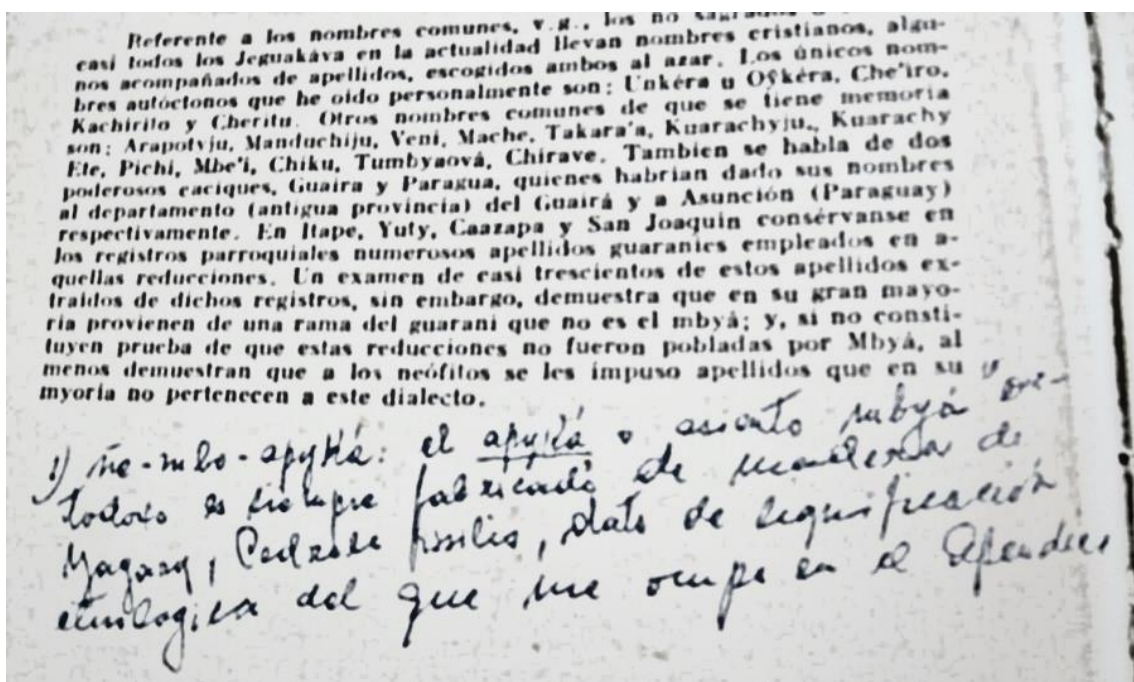 Referente a los nombres comunes, v.g., los no sagrados
casi todos los Jeguakáva en la actualidad llevan nombres cristianos, algu-
nos acompañados de apellidos, escogidos ambos al azar. Los únicos nom-
bres autóctonos que he oido personalmente son: Unkéra u Oÿkéra, Che'iro,
Kachirito y Cheritu. Otros nombres comunes de que se tiene memoria
son: Arapotyju, Manduchiju, Veni, Mache, Takara'a, Kuarachyju., Kuarachy
Ete, Pichi, Mbe'i, Chiku, Tumbyaová, Chirave. Tambien se habla de dos
poderosos caciques, Guaira y Paragua, quienes habrian dado sus nombres
al departamento (antigua provincia) del Guairá y a Asunción (Paraguay)
respectivamente. En Itape, Yuty, Caazapa y San Joaquin consérvanse en
los registros parroquiales numerosos apellidos guaranies empleados en a-
quellas reducciones. Un examen de casi trescientos de estos apellidos ex-
traídos de dichos registros, sin embargo, demuestra que en su gran mayo-
ria provienen de una rama del guarani que no es el mbyá; y, si no consti-
tuyen prueba de que estas reducciones no fueron pobladas por Mbyá, al
menos demuestran que a los neófitos se les impuso apellidos que en su
myoría no pertenecen a este dialecto.
1) ñe-mbo-apyká: el apyká o asiento mbyá "or-
todoxo es siempre fabricado de madera de
Ygary, Cedrela fissilis, dato de significación
etnilogica del que me ocupo en el